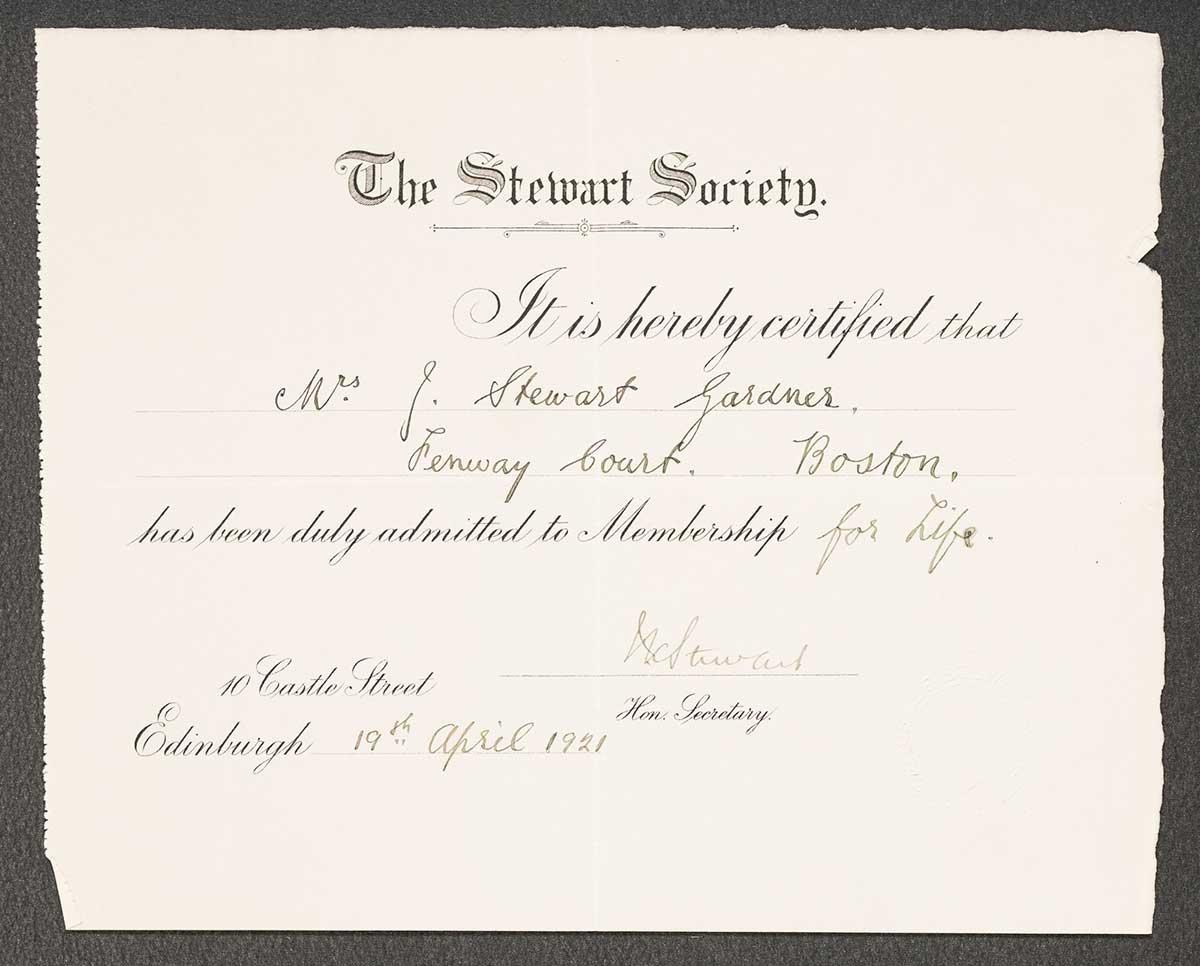 The Stewart Society.
It is hereby certified that
Mrs. J. Stewart Gardner.
Fenway Court. Boston.
has been duly admitted to Membership for Life.
Stewart
10 Castle Street
Hon. Secretary.
Edinburgh 19th April 1921